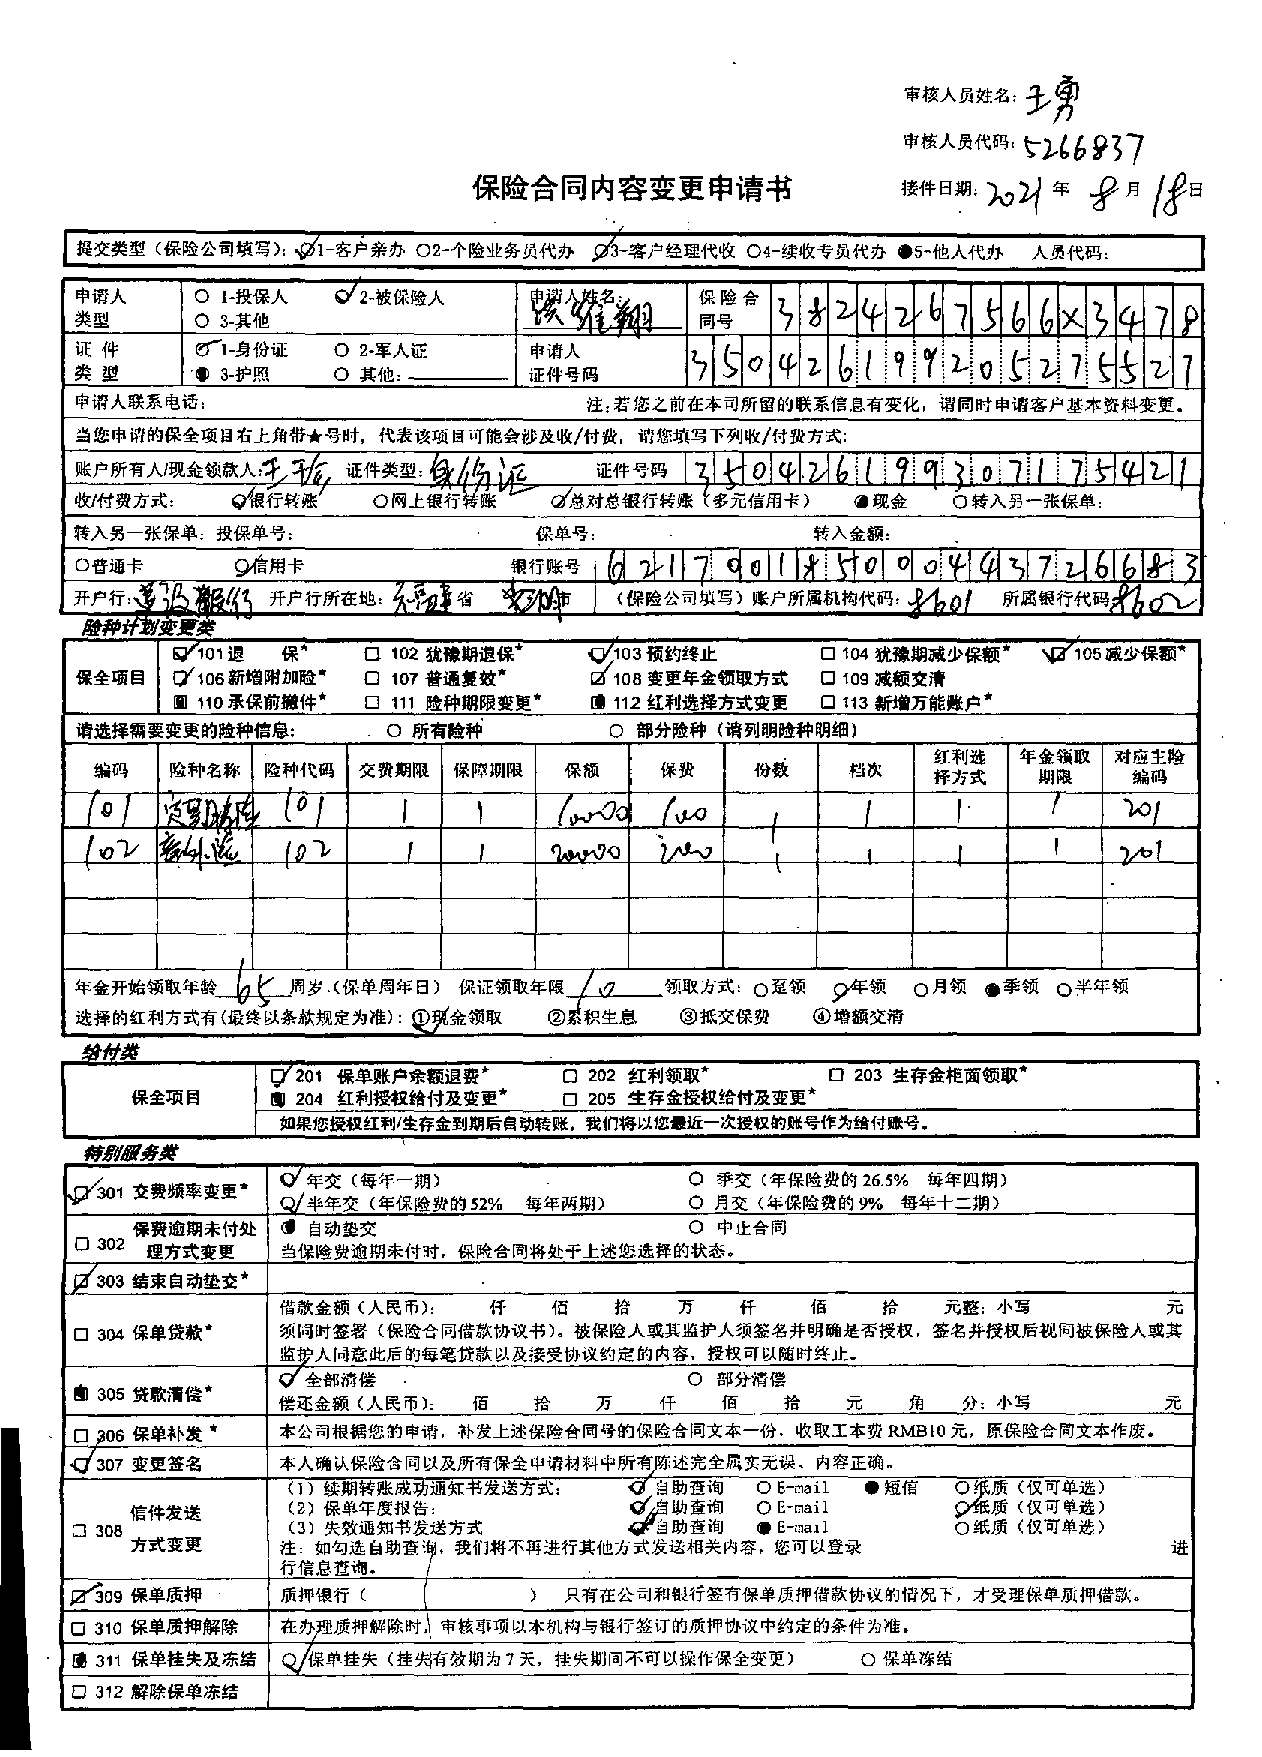 审核人员姓名：王勇
审核人员代码：5266837
保险合同内容变更申请书
接件日期：2021年8月18日
提交类型（保险公司填写）：1-客户亲办 ○2-个险业务员代办 3-客户经理代收 ○4-续收专员代办 ●5-他人代办 人员代码：
申请人类型 ○ 1-投保人 2-被保险人 ○ 3-其他 申请人姓名： 保险合同号 382426756 6x3478
证件类型 1-身份证 ○ 2-军人证 ● 3-护照 ○ 其他： 申请人证件号码 350426199205275527
申请人联系电话： 注：若您之前在本司所留的联系信息有变化，请同时申请客户基本资料变更。
当您申请的保全项目右上角带★号时，代表该项目可能会涉及收/付费，请您填写下列收/付费方式：
账户所有人/现金领款人： 证件类型：身份证 证件号码 350426199307175421
收/付费方式： 银行转账 ○网上银行转账 总对总银行转账（多元信用卡） ●现金 ○转入另一张保单：
转入另一张保单：投保单号： 保单号： 转入金额：
○普通卡 信用卡 银行账号 621700185000443726683
开户行：建设银行 开户行所在地：福建省 市 （保险公司填写）账户所属机构代码：8601 所属银行代码8602
险种计划变更类
保全项目
101退 保* □ 102 犹豫期退保* 103 预约终止 □ 104 犹豫期减少保额* 105减少保额*
106新增附加险* □ 107 普通复效* 108 变更年金领取方式 □ 109 减额交清
110 承保前撤件* □ 111 险种期限变更* 112 红利选择方式变更 □ 113 新增万能账户*
请选择需要变更的险种信息： ○ 所有险种 ○ 部分险种（请列明险种明细）
编码 险种名称 险种代码 交费期限 保障期限 保额 保费 份数 档次 红利选择方式 年金领取期限 对应主险编码
101 101 1 1 10000 1000 1 1 1 1 201
102 意外险 102 1 1 20000 2000 1 1 1 1 201
年金开始领取年龄65周岁.（保单周年日） 保证领取年限10 领取方式：○趸领 年领 ○月领 ●季领 ○半年领
选择的红利方式有（最终以条款规定为准）：①现金领取 ②累积生息 ③抵交保费 ④增额交清
给付类
保全项目
201 保单账户余额退费* □ 202 红利领取* □ 203 生存金柜面领取*
204 红利授权给付及变更* □ 205 生存金授权给付及变更*
如果您授权红利/生存金到期后自动转账，我们将以您最近一次授权的账号作为给付账号。
特别服务类
301 交费频率变更* 年交（每年一期） ○ 季交（年保险费的26.5% 每年四期）
半年交（年保险费的52% 每年两期） ○ 月交（年保险费的9% 每年十二期）
□ 302 保费逾期未付处理方式变更 ● 自动垫交 ○ 中止合同
当保险费逾期未付时，保险合同将处于上述您选择的状态。
303 结束自动垫交*
□ 304 保单贷款* 借款金额（人民币）： 仟 佰 拾 万 仟 佰 拾 元整：小写 元
须同时签署（保险合同借款协议书）。被保险人或其监护人须签名并明确是否授权，签名并授权后视同被保险人或其
监护人同意此后的每笔贷款以及接受协议约定的内容，授权可以随时终止。
305 贷款清偿* 全部清偿 ○ 部分清偿
偿还金额（人民币）： 佰 拾 万 仟 佰 拾 元 角 分：小写 元
□ 306 保单补发* 本公司根据您的申请，补发上述保险合同号的保险合同文本一份，收取工本费RMB10元，原保险合同文本作废。
307 变更签名 本人确认保险合同以及所有保全申请材料中所有陈述完全属实无误、内容正确。
□ 308 信件发送方式变更 （1）续期转账成功通知书发送方式： 自助查询 ○E-mail ●短信 ○纸质（仅可单选）
（2）保单年度报告： 自助查询 ○E-mail 纸质（仅可单选）
（3）失效通知书发送方式 自助查询 ●E-mail ○纸质（仅可单选）
注：如勾选自助查询，我们将不再进行其他方式发送相关内容，您可以登录 进
行信息查询。
309 保单质押 质押银行（ ） 只有在公司和银行签有保单质押借款协议的情况下，才受理保单质押借款。
□ 310 保单质押解除 在办理质押解除时，审核事项以本机构与银行签订的质押协议中约定的条件为准。
311 保单挂失及冻结 保单挂失（挂失有效期为7天，挂失期间不可以操作保全变更） ○ 保单冻结
□ 312 解除保单冻结